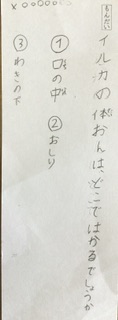 もんだい
イルカの体おんは、どこではかるでしょうか
①口の中 ②おしり
③わきの下